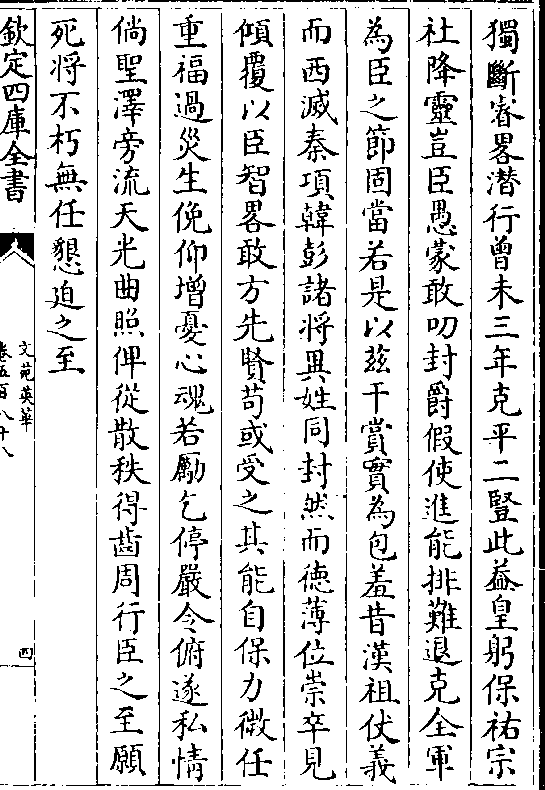 獨斷睿畧潛行曾未三年克平二豎此葢皇躬保祐宗
社降靈豈臣愚蒙敢叨封爵假使進能排難退克全軍
為臣之節固當若是以茲干賞實為包羞昔漢祖仗義
而西滅秦項韓彭諸將異姓同封然而徳薄位崇卒見
傾覆以臣智畧敢方先賢苟或受之其能自保力微任
重福過災生俛仰增憂心魂若勵乞停嚴令俯遂私情
倘聖澤旁流天光曲照俾從散秩得齒周行臣之至願
死將不朽無任懇迫之至
欽定四庫全書
文苑英華
卷五百八十八
四